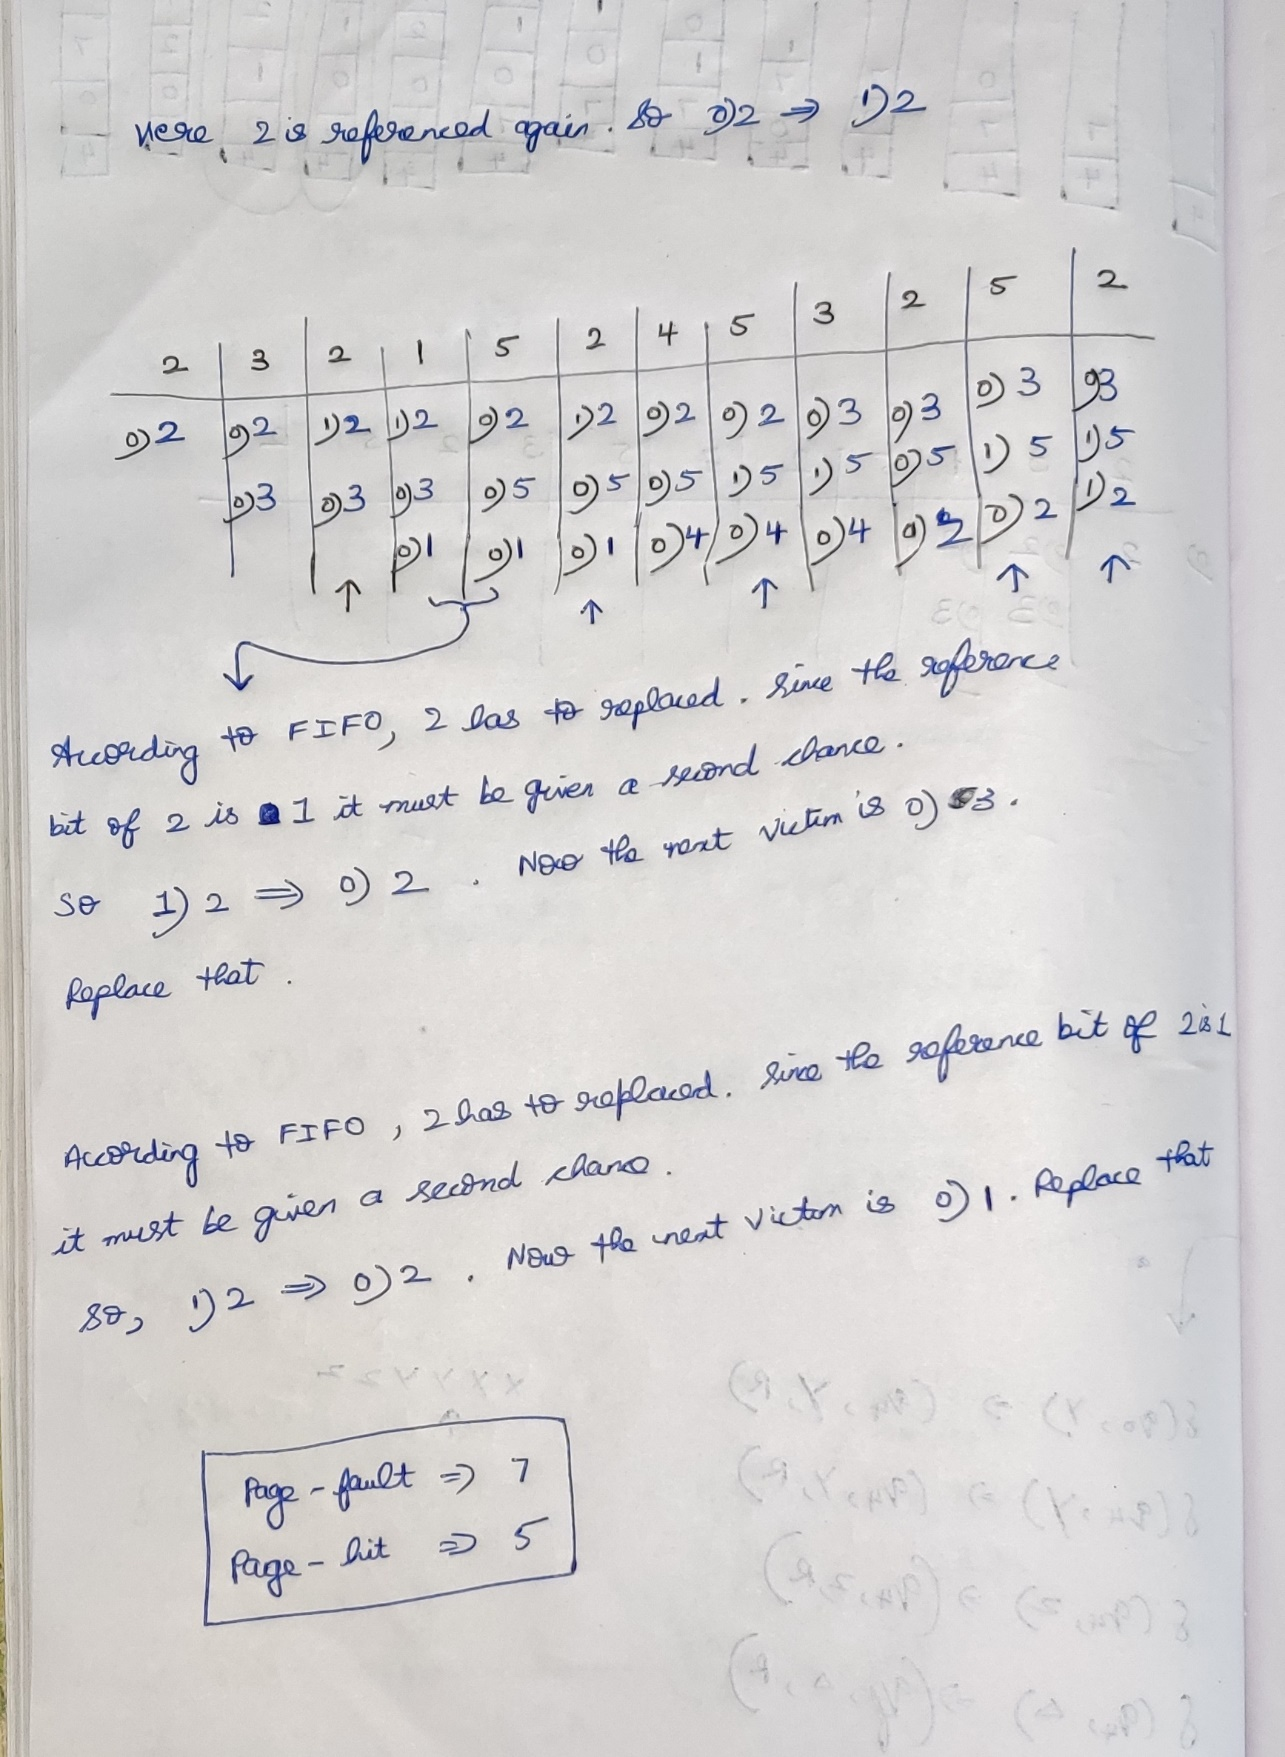 Here 2 is referenced again. So 0)2 ⇒ 1)2
2 3 2 1 5 2 4 5 3 2 5 2
0)2 0)2 1)2 1)2 0)2 1)2 0)2 0)2 0)3 0)3 0)3 0)3
0)3 0)3 0)3 0)5 0)5 0)5 1)5 1)5 0)5 1)5 1)5
0)1 0)1 0)1 0)4 0)4 0)4 0)2 0)2 1)2
↑ ↑ ↑ ↑ ↑
According to FIFO, 2 has to replaced. Since the reference
bit of 2 is 1 it must be given a second chance.
So 1) 2 ⇒ 0) 2 . Now the next victim is 0) 3.
Replace that.
According to FIFO, 2 has to replaced. Since the reference bit of 2 is 1
it must be given a second chance.
So, 1)2 ⇒ 0)2 . Now the next victim is 0) 1. Replace that
Page-fault ⇒ 7
Page-hit ⇒ 5